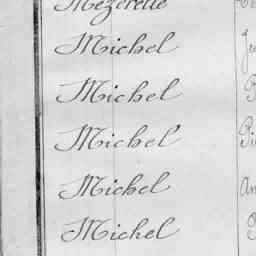 Mezerette
Michel
Michel
Michel
Michel
Michel